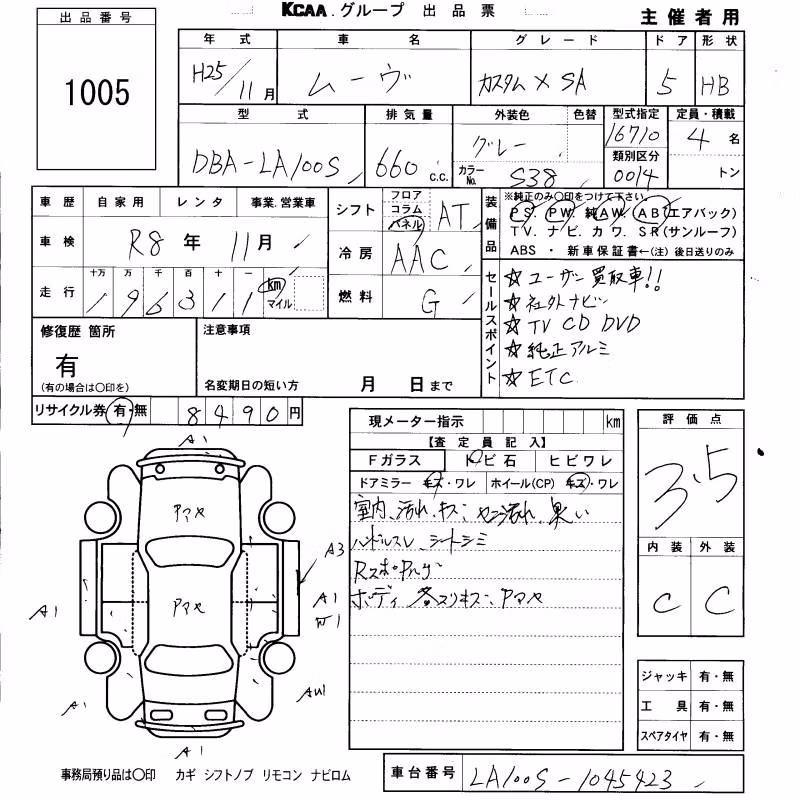 KCAA.グループ 出品票
主催者用
出品番号
1005
年式 車名 グレード ドア 形状
H25/11月 ムーヴ カスタム X SA 5 HB
型式 排気量 外装色 色替 型式指定 定員・積載
DBA-LA100S 660 c.c. グレー 16710 4名
カラーNo. S38 類別区分 0014 トン
車歴 自家用 レンタ 事業.営業車
車検 R8年 11月
走行 十万 万 千 百 十 一 km マイル
196311
シフト フロア コラム パネル AT
冷房 AAC
燃料 G
装備品 ※純正のみ○印をつけて下さい。
PS. PW. 純AW. AB(エアバック)
TV. ナビ. カワ. SR(サンルーフ)
ABS ・ 新車保証書←(注) 後日送りのみ
セールスポイント
☆ ユーザー買取車!!
☆ 社外ナビ
☆ TV CD DVD
☆ 純正アルミ
☆ ETC
修復歴 箇所
有
(有の場合は○印を)
注意事項
名変期日の短い方 月 日まで
リサイクル券 有・無 8490円
現メーター指示 km
【査定員記入】
Fガラス トビ石 ヒビワレ
ドアミラー キズ・ワレ ホイール(CP) キズ・ワレ
室内、汚れ、キズ、 汚れ、臭い
ハンドルスレ、シートシミ
ボディ 各スリキズ、アマヤ
評価点
3.5
内装 外装
C C
A1
アマヤ
A3
アマヤ
A1
A1
W1
A1
A1
ジャッキ 有・無
工具 有・無
スペアタイヤ 有・無
事務局預り品は○印 カギ シフトノブ リモコン ナビロム
車台番号 LA100S-1045423